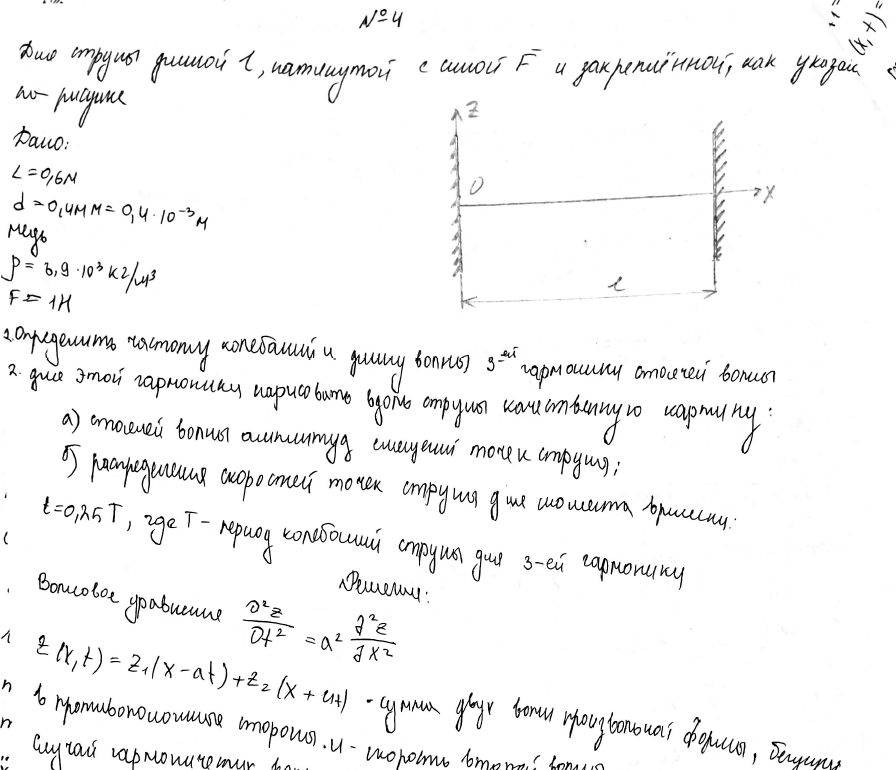 №4
Для струны длиной l, натянутой с силой F и закреплённой, как указан
на рисунке
Z
O
X
l
Дано:
L=0,6м
d=0,4мм=0,4·10⁻³м
медь
ρ=8,9·10³кг/м³
F=1Н
1.Определить частоту колебаний и длину волны 3-ей гармоники стоячей волны
2. для этой гармоники нарисовать вдоль струны качественную картину:
а) стоячей волны амплитуд смещений точек струны;
б) распределения скоростей точек струны для момента времени:
t=0,25T, где T-период колебаний струны для 3-ей гармоники
Решение:
Волновое уравнение ∂²z/∂t² = a² ∂²z/∂x²
Z(x,t)=Z₁(x-at)+Z₂(x+at) - сумма двух волн произвольной формы, бегущих
в противоположные стороны. и - скорость второй волны
Случай гармонических
(x,t)=